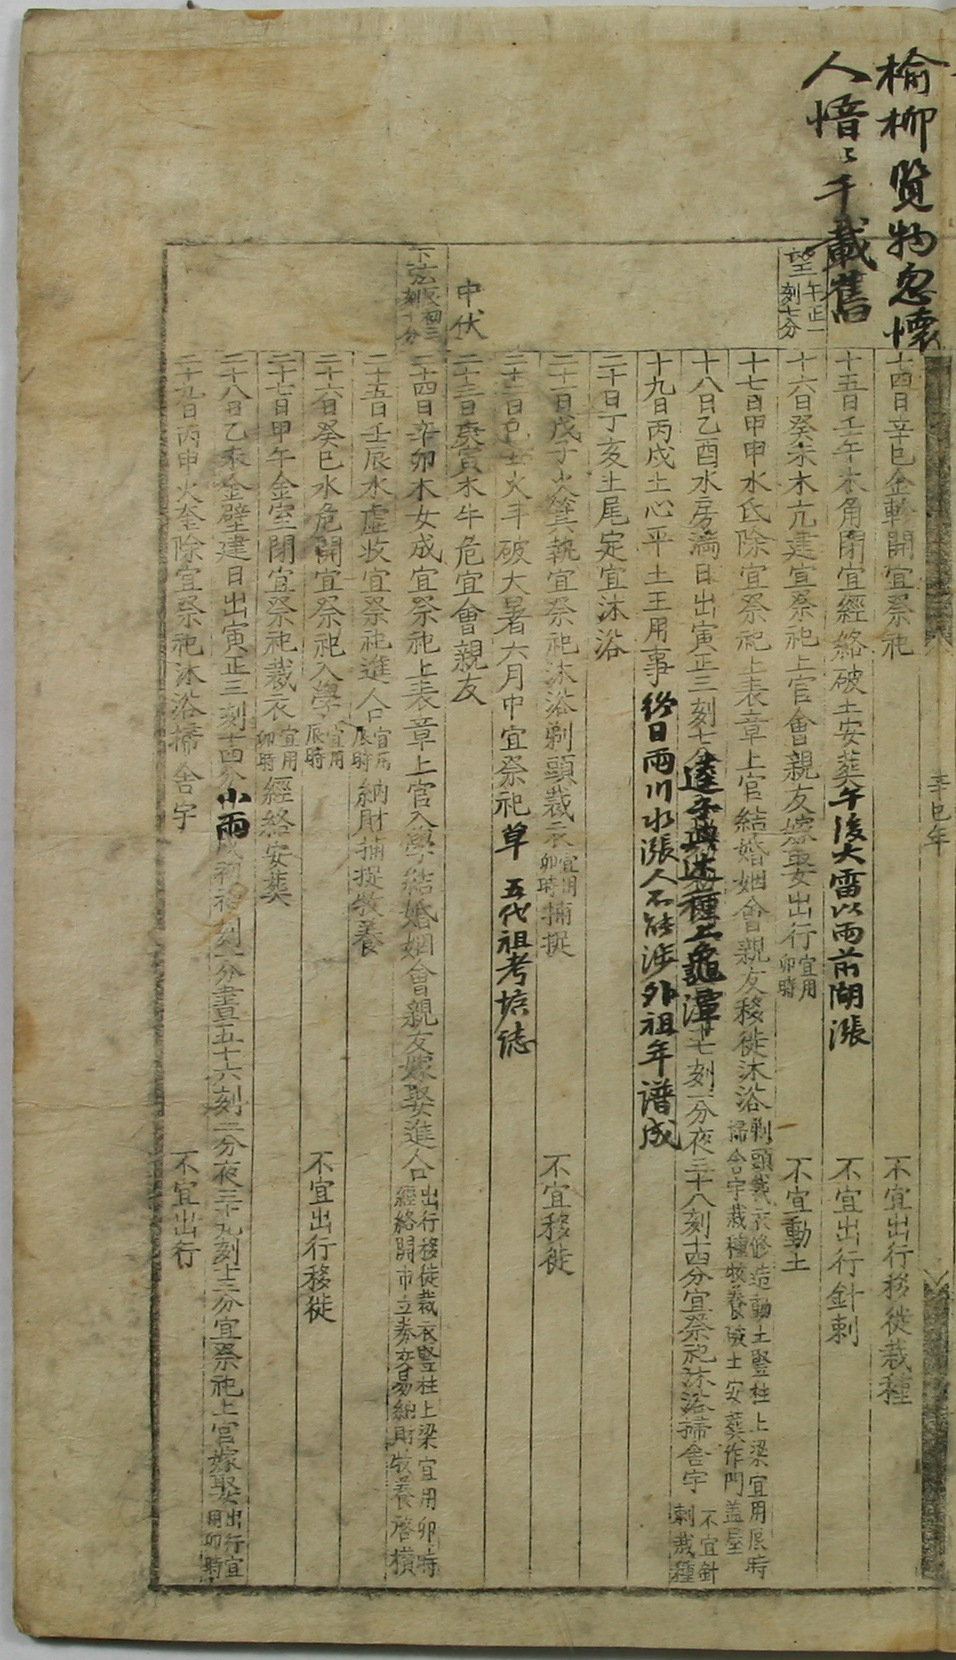 榆柳覽物忽懷
人愔〻千載舊
辛巳年
十四日辛巳金軫開宜祭祀 不宜出行移徙栽種
十五日壬午木角閉宜經絡破土安葬 午後大雷以雨前湖漲 不宜出行針刺
望午正一刻七分
十六日癸未木亢建宜祭祀上官會親友嫁娶出行宜用卯時 不宜動土
十七日甲申水氐除宜祭祀上表章上官結婚姻會親友移徙沐浴剃頭裁衣修造動土豎柱上梁宜用辰時掃舍宇栽種牧養破土安葬作門盖屋
十八日乙酉水房滿日出寅正三刻七分 七刻一分夜三十八刻十四分宜祭祀沐浴掃舍宇不宜針刺栽種
十九日丙戌土心平土王用事 終日雨川水漲人不能涉外祖年譜成
二十日丁亥土尾定宜沐浴
二十一日戊子火箕執宜祭祀沐浴剃頭裁衣宜用卯時捕捉 不宜移徙
二十二日己丑火斗破大暑六月中宜祭祀 草 五代祖考壙誌
中伏
二十三日庚寅木牛危宜會親友
下弦辰初三刻十分
二十四日辛卯木女成宜祭祀上表章上官入學結婚姻會親友嫁娶進人口出行移徙裁衣豎柱上梁宜用卯時經絡開市立券交易納財牧養啓欑
二十五日壬辰水虛收宜祭祀進人口宜用辰時納財捕捉牧養
二十六日癸巳水危開宜祭祀入學宜用辰時 不宜出行移徙
二十七日甲午金室閉宜祭祀裁衣宜用卯時經絡安葬
二十八日乙未金壁建日出寅正三刻十四分 小雨 戌初初刻一分晝五十六刻二分夜三十九刻十三分宜祭祀上官嫁娶出行宜用卯時
二十九日丙申火奎除宜祭祀沐浴掃舍宇 不宜出行